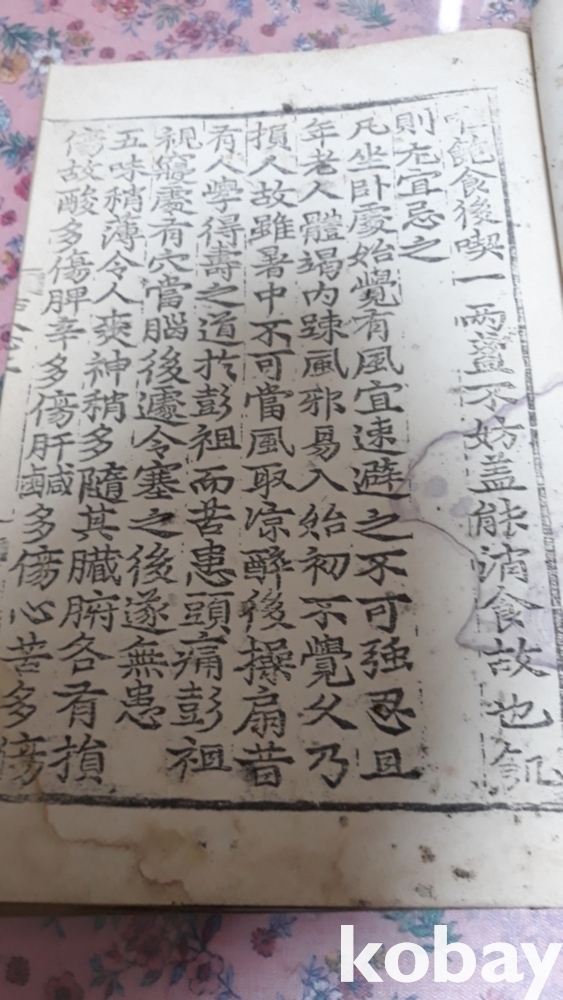 飽食後喫一兩盞不妨盖能消食故也飢
則尤宜忌之
凡坐卧處始覺有風宜速避之不可强忍且
年老人體竭内踈風邪易入始初不覺久乃
損人故雖暑中不可當風取凉醉後操扇昔
有人學得壽之道扵彭祖而苦患頭痛彭祖
視寢處有穴當腦後遽令塞之後遂無患
五味稍薄令人爽神稍多隨其臟腑各有損
傷故酸多傷脾辛多傷肝鹹多傷心苦多傷
kobay